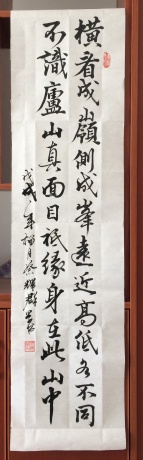 橫看成嶺側成峯遠近髙低各不同
不識廬山真面目祇緣身在此山中
戊戌年